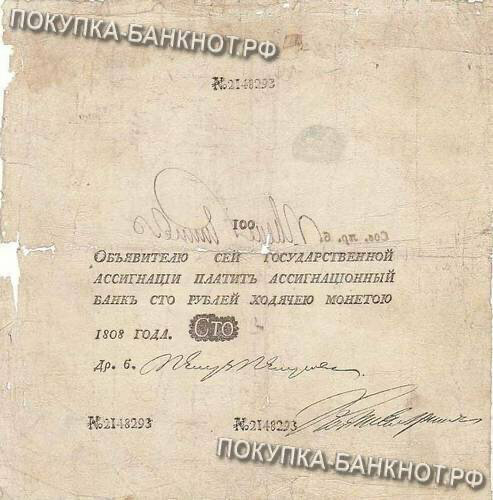 ПОКУПКА-БАНКНОТ.РФ
№2148293
100
Сов. пр. б.
Объявителю сей государственной
ассигнации платитъ ассигнаціонный
банкъ сто рублей ходячею монетою
1808 года. Сто
Др. б.
№2148293 №2148293
ПОКУПКА-БАНКНОТ.РФ